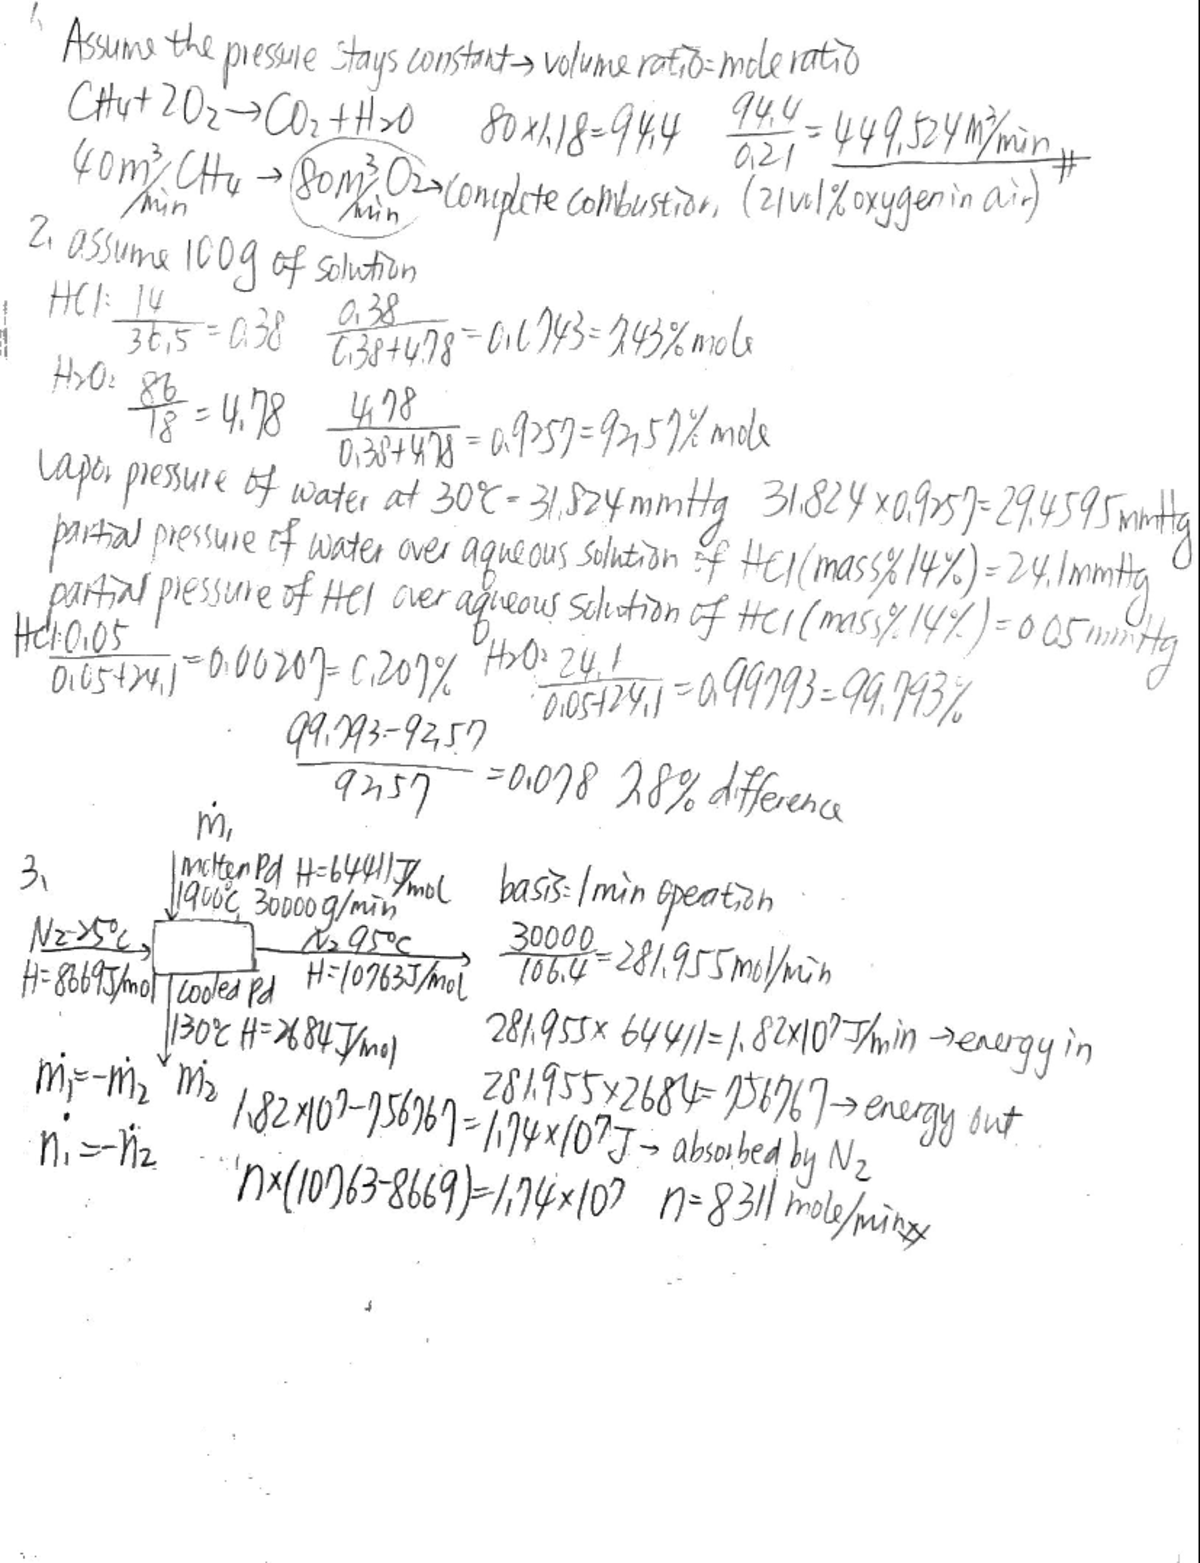 1,
Assume the pressure stays constant → volume ratio = mole ratio
CH4 + 2O2 → CO2 + H2O 80×1,18=94,4 94,4/0,21 = 449,524 m³/min #
40 m³/min CH4 → 80 m³/min O2 → complete combustion, (21 vol% oxygen in air)
2, assume 100g of solution
HCl: 14/36,5 = 0,38 0,38/0,38+4,78 = 0,0743 = 7,43% mole
H2O: 86/18 = 4,78 4,78/0,38+4,78 = 0,9257 = 92,57% mole
Vapor pressure of water at 30°C = 31,824 mmHg 31,824 × 0,9257 = 29,4595 mmHg
partial pressure of water over aqueous solution of HCl (mass% 14%) = 24,1 mmHg
partial pressure of HCl over aqueous solution of HCl (mass% 14%) = 0,05 mmHg
HCl: 0,05/0,05+24,1 = 0,00207 = 0,207% H2O: 24,1/0,05+24,1 = 0,99793 = 99,793%
99,793-92,57/92,57 = 0,078 7,8% difference
3,
ṁ1
molten Pd H=64411 J/mol
1900°C, 30000 g/min
basis: 1 min operation
N2 25°C
H=8669 J/mol
N2 95°C
H=10763 J/mol
30000/106,4 = 281,955 mol/min
cooled Pd
130°C H=2684 J/mol
281,955 × 64411 = 1,82×10⁷ J/min → energy in
ṁ1=-ṁ2 ṁ2
281,955 × 2684 = 756767 → energy out
1,82×10⁷ - 756767 = 1,74×10⁷ J → absorbed by N2
ṅ1=-ṅ2
n×(10763-8669)=1,74×10⁷ n=8311 mole/min